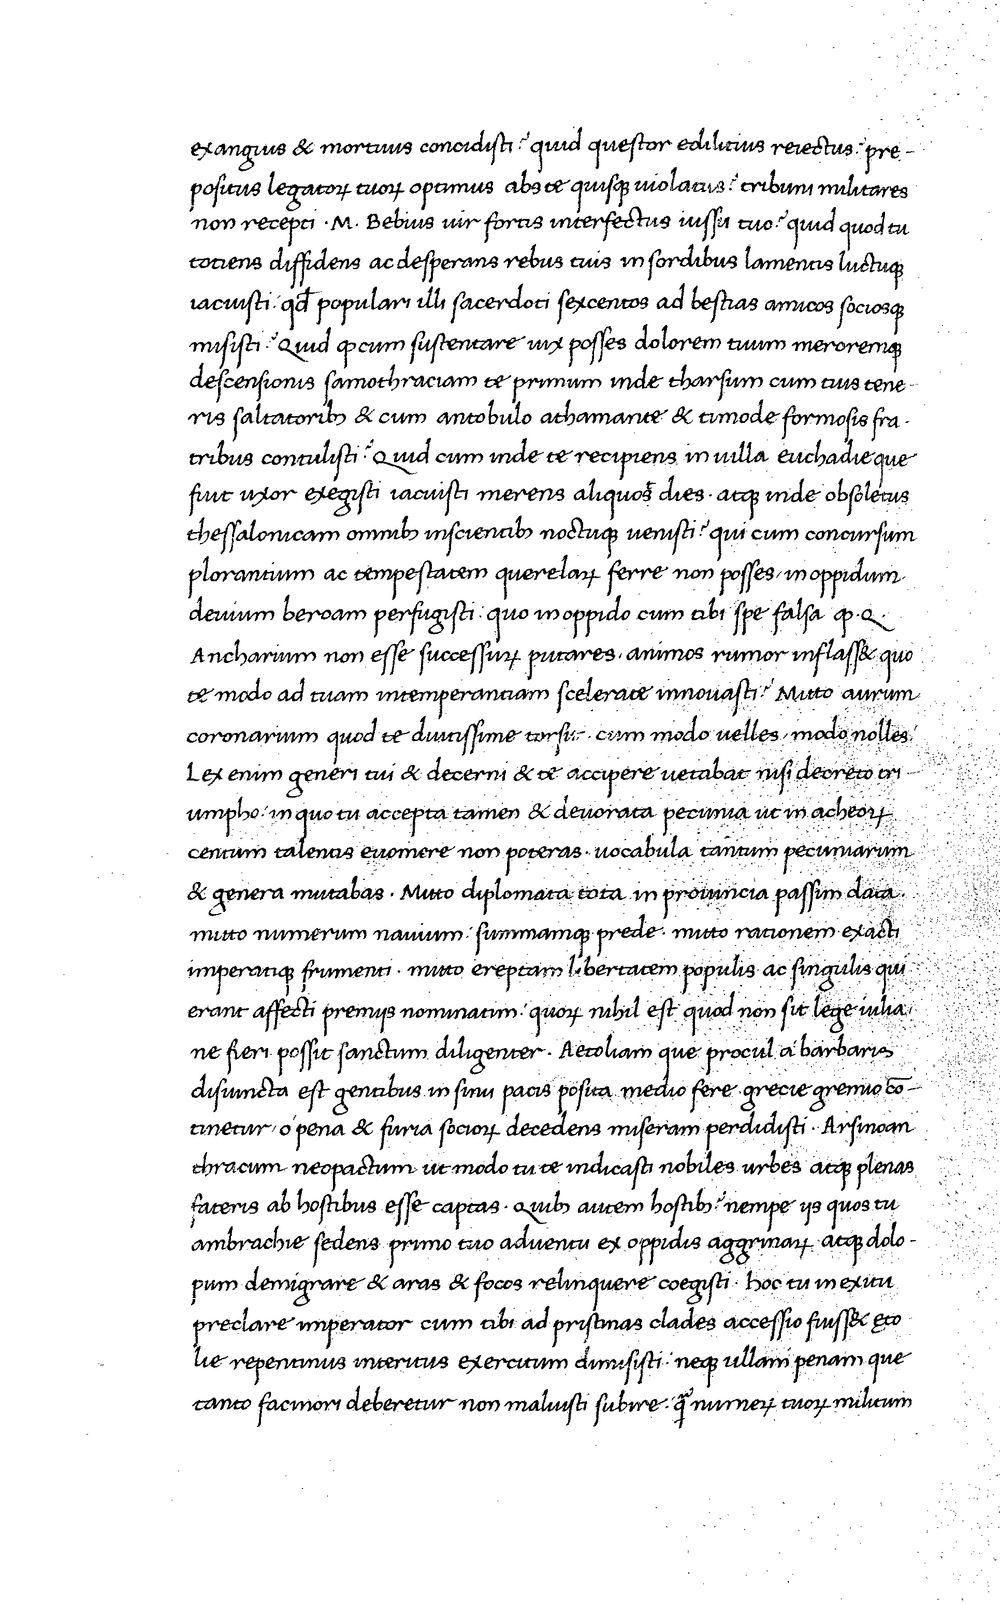 exangius & mortuus concidisti? quid questor edilitius reiectus? pre-
positus legatoꝝ tuoꝝ optimus abs te quisqꝫ uiolatus? tribuni militares
non recepti · M. Bebius uir fortis interfectus iussu tuo? quid quod tu
totiens diffidens ac desperans rebus tuis in sordibus lamentis luctuqꝫ
iacuisti: qđ populari illi sacerdoti sexcentos ad bestias amicos sociosqꝫ
misisti? Quid ꝙ cum sustentare uix posses dolorem tuum meroremqꝫ
descensionis samothraciam te primum inde tharsum cum tuis tene-
ris saltatoribꝫ & cum antobulo athamante & timode formosis fra-
tribus contulisti? Quid cum inde te recipiens in uilla euchadie que
fuit uxor exegisti iacuisti merens aliquos dies · atqꝫ inde obsoletus
thessalonicam omnibꝫ inscientibꝫ noctuqꝫ uenisti? qui cum concursum
plorantium ac tempestatem querelaꝝ ferre non posses, in oppidum
deuium beroam perfugisti: quo in oppido cum tibi spe falsa ꝙ · Q.
Ancharium non esse successuꝝ putares, animos rumor inflass& quo
te modo ad tuam intemperantiam scelerate innouasti? Mitto aurum
coronarium quod te diutissime torsit · cum modo uelles, modo nolles.
Lex enim generi tui & decerni & te accipere uetabat nisi decreto tri-
umpho: in quo tu accepta tamen & deuorata pecunia ut in acheoꝝ
centum talentis euomere non poteras · uocabula tantum pecuniarum
& genera mutabas · Mitto diplomata tota in prouincia passim data
mitto numerum nauium: summamqꝫ prede · mitto rationem exacti
imperatiqꝫ frumenti · mitto ereptam libertatem populis ac singulis qui
erant affecti premijs nominatim: quoꝝ nihil est quod non sit lege iulia
ne fieri possit sanctum diligenter · Aetoliam que procul a barbaris
disiuncta est gentibus in sinu pacis posita medio fere grecie gremio cō-
tinetur, o pena & furia socioꝝ decedens miseram perdidisti · Arsinoan
thracum neopactum ut modo tu te indicasti nobiles urbes atqꝫ plenas
fateris ab hostibus esse captas · Quibꝫ autem hostibꝫ? nempe ijs quos tu
ambrachie sedens primo tuo aduentu ex oppidis aggrinaꝝ atqꝫ dolo-
pum demigrare & aras & focos relinquere coegisti · hoc tu in exitu
preclare imperator cum tibi ad pristinas clades accessio fuiss& ęto
lie repentinus interitus exercitum dimisisti: neqꝫ ullam penam que
tanto facinori deberetur non maluisti subire · numeꝝ tuoꝝ militum